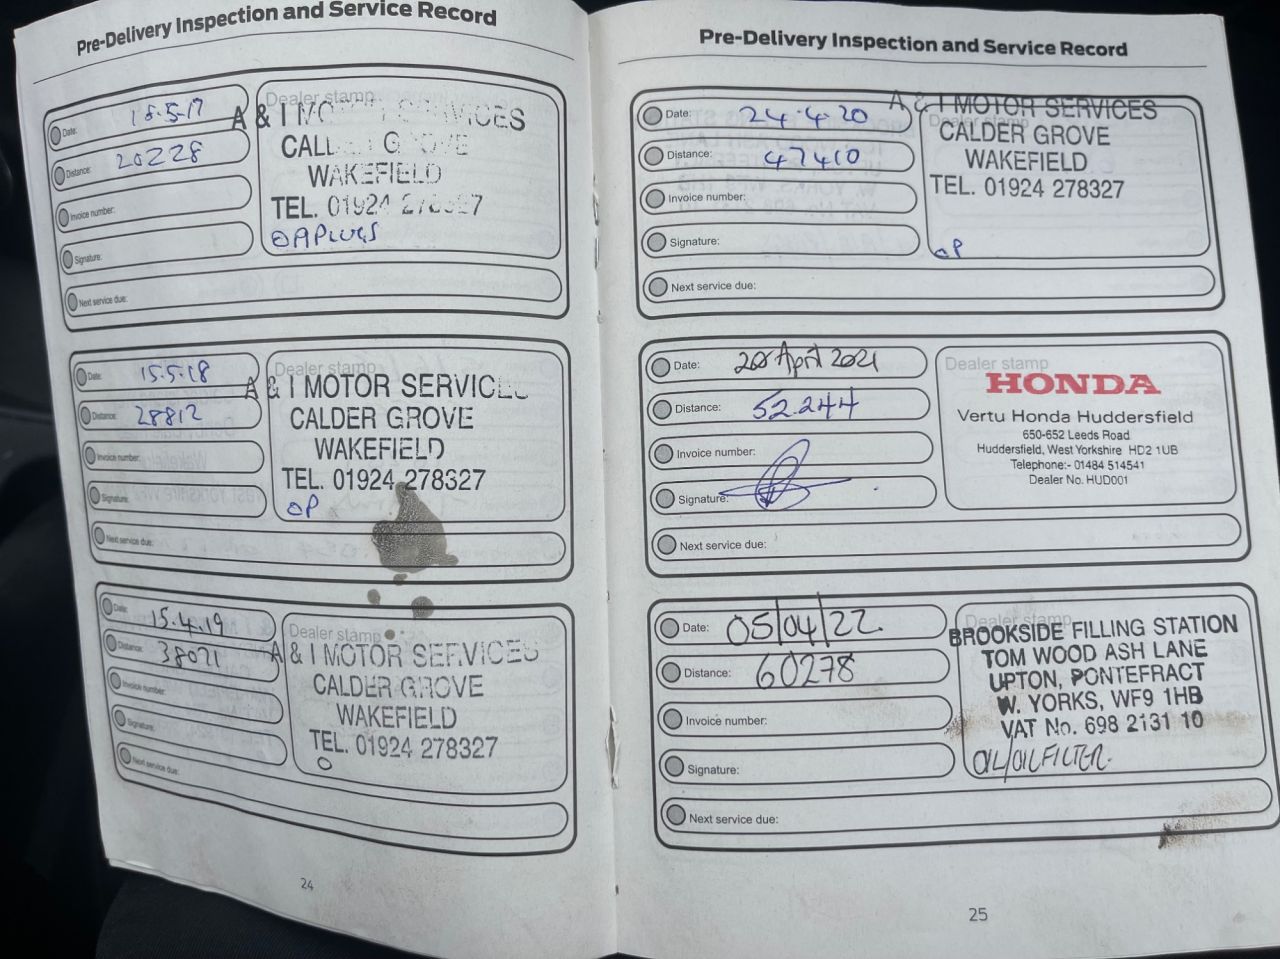 Pre-Delivery Inspection and Service Record
Date: 15.5.17
Distance: 20228
Invoice number:
Signature:
Next service due:
Dealer stamp
A & I MOTOR SERVICES
CALDER GROVE
WAKEFIELD
TEL. 01924 278327
Date: 15.5.18
Distance: 28812
Invoice number:
Signature:
Next service due:
Dealer stamp
A & I MOTOR SERVICES
CALDER GROVE
WAKEFIELD
TEL. 01924 278327
OP
Date: 15.4.19
Distance: 38021
Invoice number:
Signature:
Next service due:
Dealer stamp
A & I MOTOR SERVICES
CALDER GROVE
WAKEFIELD
TEL. 01924 278327
O
24
Pre-Delivery Inspection and Service Record
Date: 24.4.20
Distance: 47410
Invoice number:
Signature:
Next service due:
Dealer stamp
A & I MOTOR SERVICES
CALDER GROVE
WAKEFIELD
TEL. 01924 278327
OP
Date: 20 April 2021
Distance: 52244
Invoice number:
Signature:
Next service due:
Dealer stamp
HONDA
Vertu Honda Huddersfield
650-652 Leeds Road
Huddersfield, West Yorkshire HD2 1UB
Telephone:- 01484 514541
Dealer No. HUD001
Date: 05/04/22.
Distance: 60278
Invoice number:
Signature:
Next service due:
Dealer stamp
BROOKSIDE FILLING STATION
TOM WOOD ASH LANE
UPTON, PONTEFRACT
W. YORKS, WF9 1HB
VAT No. 698 2131 10
OIL/OILFILTER.
25